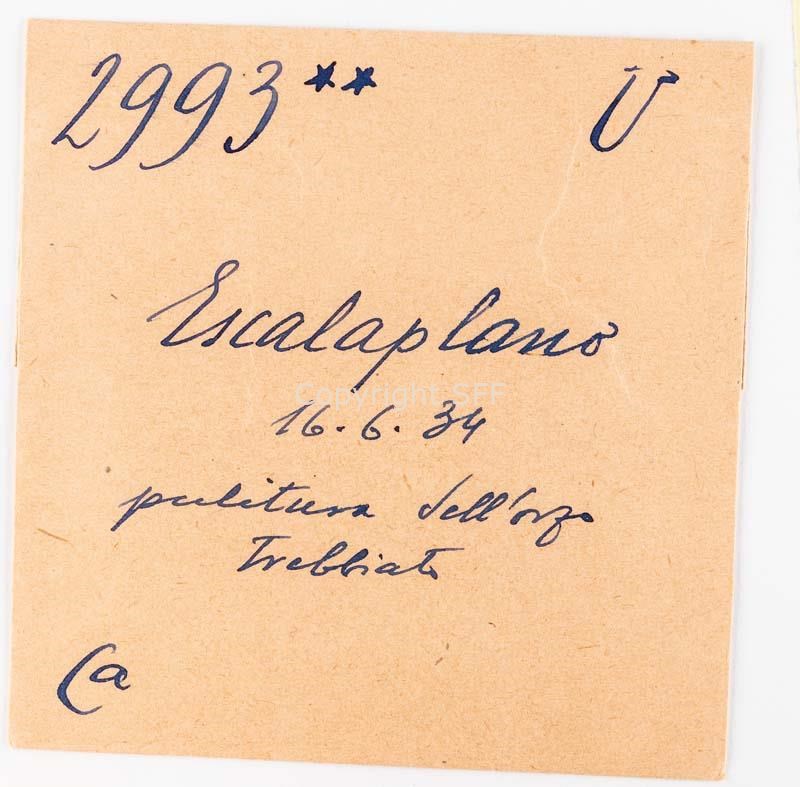 2993** U
Escalaplano
Copyright SFF
16.6.34
pulitura dell'orzo
trebbiato
Ca